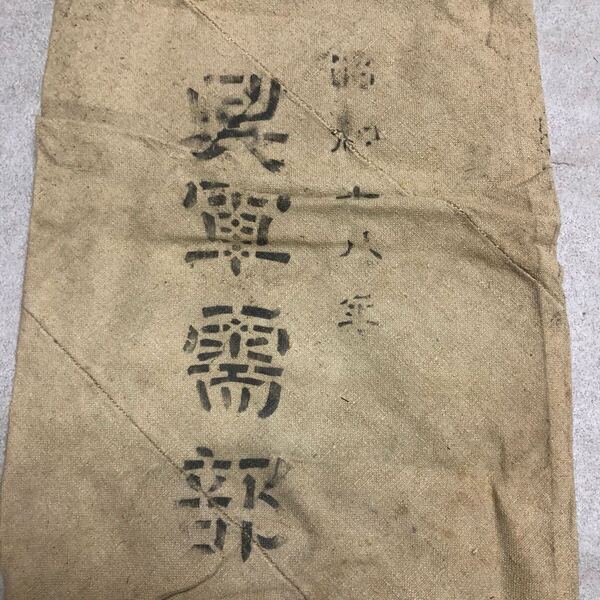 昭和十八年
呉軍需部